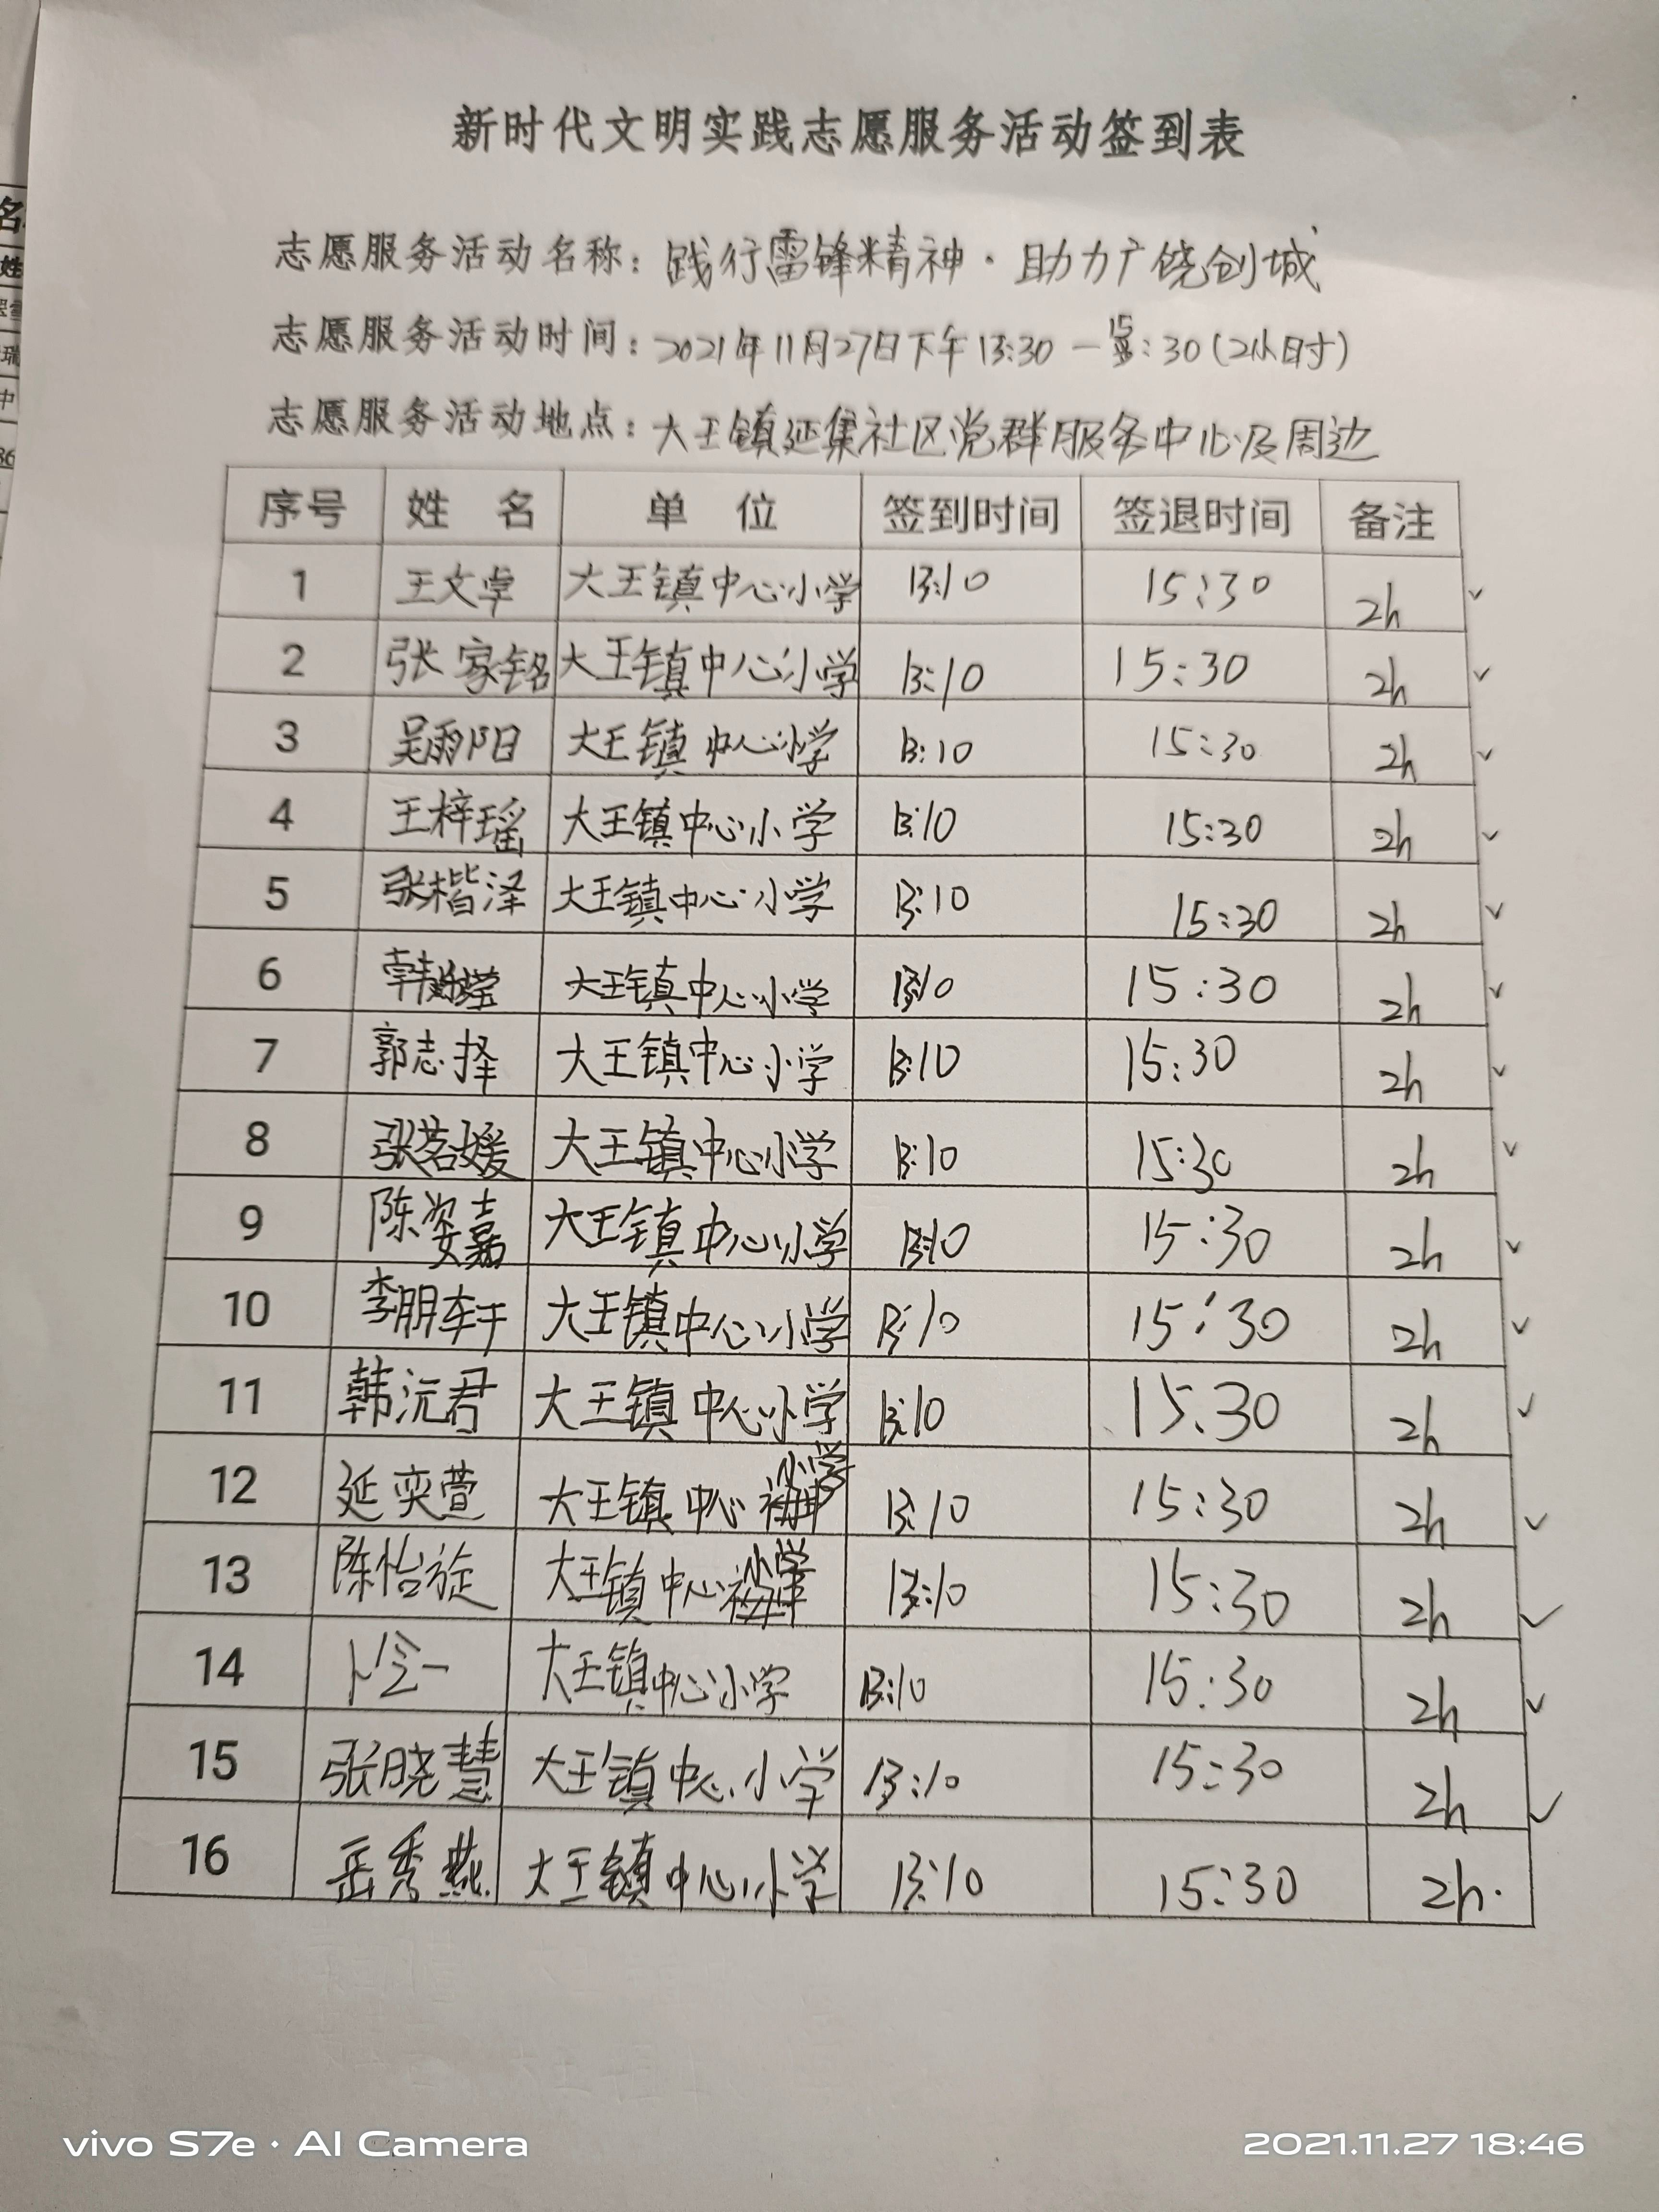 新时代文明实践志愿服务活动签到表
志愿服务活动名称：践行雷锋精神·助力广饶创城
志愿服务活动时间：2021年11月27日下午13:30—15:30(2小时)
志愿服务活动地点：大王镇延集社区党群服务中心及周边
序号 姓 名 单 位 签到时间 签退时间 备注
1 王文卓 大王镇中心小学 13:10 15:30 2h ✓
2 张家铭 大王镇中心小学 13:10 15:30 2h ✓
3 吴雨阳 大王镇中心小学 13:10 15:30 2h ✓
4 王梓瑶 大王镇中心小学 13:10 15:30 2h ✓
5 张楷泽 大王镇中心小学 13:10 15:30 2h ✓
6 韩 大王镇中心小学 13:10 15:30 2h ✓
7 郭志择 大王镇中心小学 13:10 15:30 2h ✓
8 张茗媛 大王镇中心小学 13:10 15:30 2h ✓
9 陈姿嘉 大王镇中心小学 13:10 15:30 2h ✓
10 李朋轩 大王镇中心小学 13:10 15:30 2h ✓
11 韩沅君 大王镇中心小学 13:10 15:30 2h ✓
12 延奕萱 大王镇中心小学 13:10 15:30 2h ✓
13 陈怡旋 大王镇中心小学 13:10 15:30 2h ✓
14 卜一 大王镇中心小学 13:10 15:30 2h ✓
15 张晓慧 大王镇中心小学 13:10 15:30 2h ✓
16 岳秀燕 大王镇中心小学 13:10 15:30 2h.
vivo S7e · AI Camera
2021.11.27 18:46